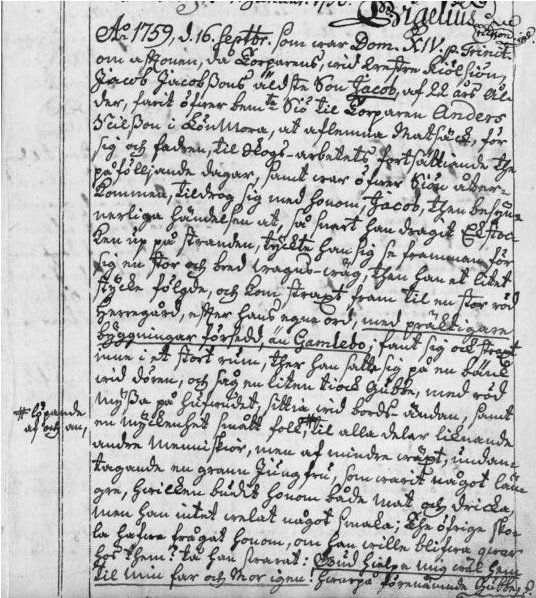 Aō 1759, d. 16. Septbr. som war Dom. XIV. p. Trinit.
om aftonen, då Torparens, wid Westre Kiölsjön,
Jacob Jacobssons äldste Son Jacob, af 22 års ål-
der, farit öfwer bemte Siö til Torparen Anders
Nilsson i Lönmora, at aflemna Matsäck, för
sig och fadren, til skogs-arbetets fortsättiande the
påföljande dagar, samt war öfwer Siön åter-
kommen, tildrog sig med honom, Jacob, then besyn-
nerliga händelsen at, så snart han dragit Ekstoc-
ken up på stranden, tyckte han sig se framman för
sig en stor och bred wagns-wäg, then han et litet
stycke fölgde, och kom straxt fram til en stor röd
Herregård, efter hans egne ord, med präktigare
byggningar försedd, än Gamlebo; fant sig ock straxt
inne i et stort rum, ther han satte sig på en bänk
wid dören, och såg en liten tiock Gubbe, med röd
Myssa på hufwudet, sittia wid bords-ändan, samt
en myckenhet smått folk, # til alla delar liknande
# löpande
af och an,
andre menniskior, men af mindre wäxt, undan-
tagande en grann Jungfru, som warit något län-
gre, hwilken budit honom både mat och dricka,
men han intet welat något smaka; The öfrige sko-
la hafwa frågat honom, om han wille blifwa qwar
hos them? tå han swarat: Gud hielpe mig wäl hem
til min far och Mor igen! hwarpå förenämnde Gubbe